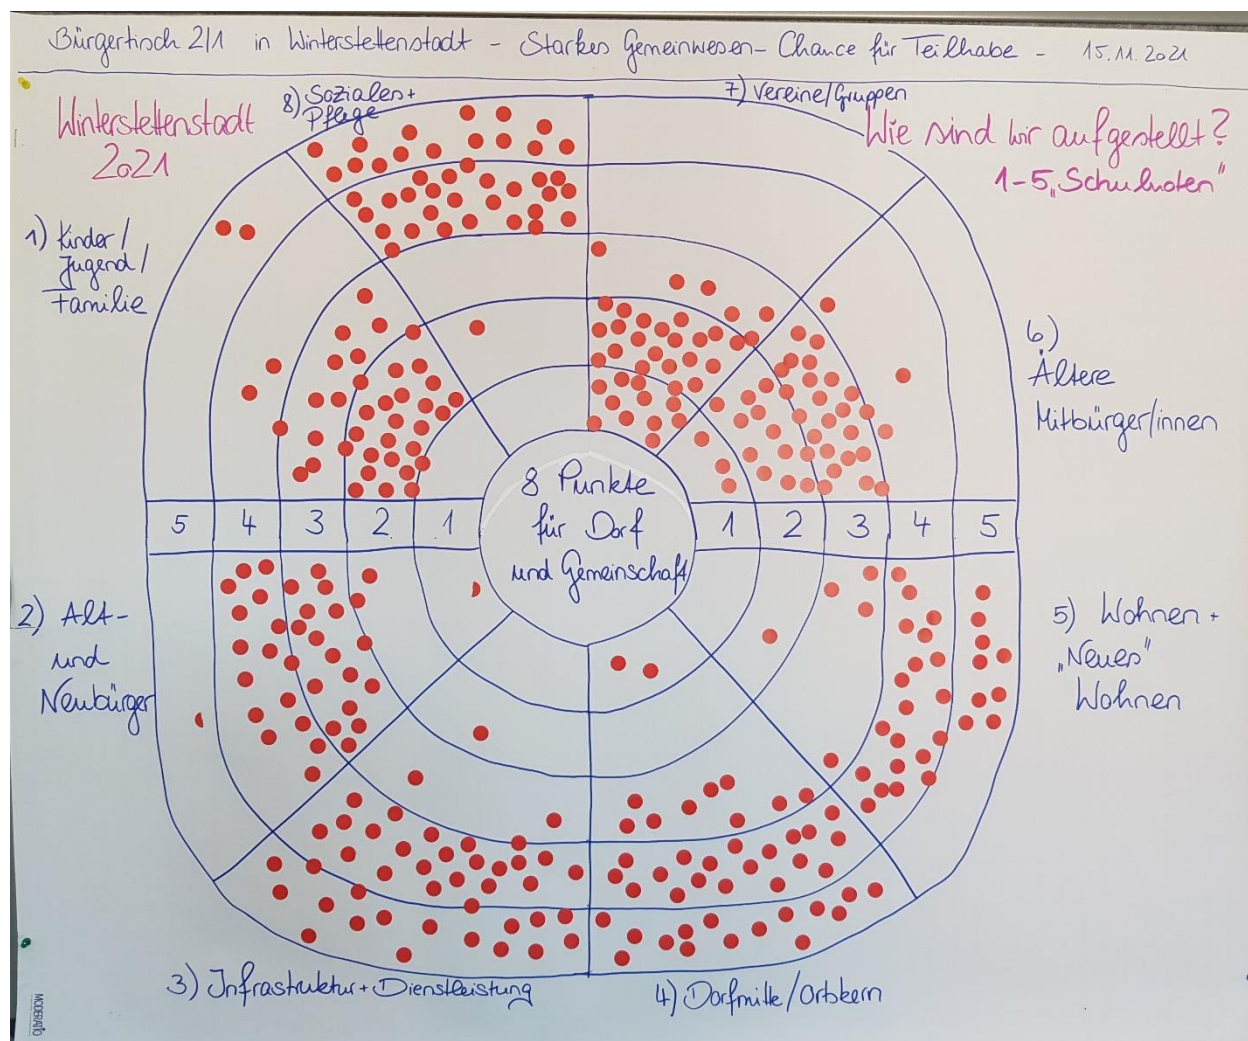 Bürgertisch 2/1 in Winterstettenstadt - Starkes Gemeinwesen - Chance für Teilhabe - 15.11.2021
Winterstettenstadt
2021
8) Soziales +
Pflege
7) Vereine/Gruppen
Wie sind wir aufgestellt?
1-5 „Schulnoten"
1) Kinder/
Jugend/
Familie
6)
Ältere
Mitbürger/innen
8 Punkte
für Dorf
und Gemeinschaft
5 4 3 2 1
1 2 3 4 5
2) Alt-
und
Neubürger
5) Wohnen +
„Neues"
Wohnen
3) Infrastruktur + Dienstleistung
4) Dorfmitte/Ortskern
MODERATIO